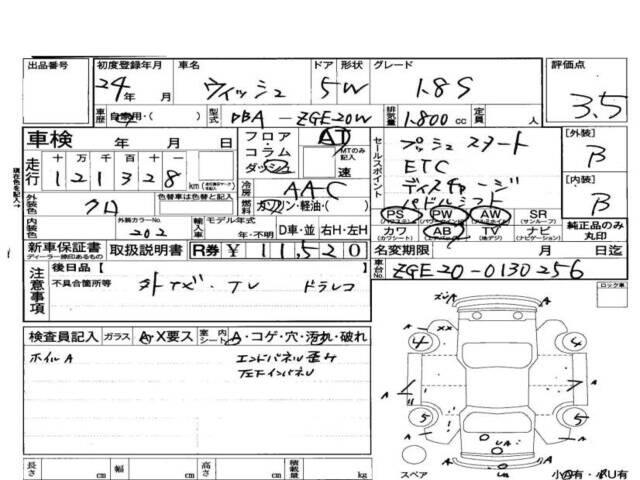 出品番号 初度登録年月 車名 ドア 形状 グレード 評価点
24年 月 ウィッシュ 5W 1.8S 3.5
車歴 自家用・( ) 型式 DBA-ZGE20W 排気量 1.800cc 定員 人
車検 年 月 日 フロア・コラム・ダッシュ AT MTのみ記入 速 セールスポイント プッシュスタート [外装] B
走行 十万 万 千 百 十 一 121328 km ETC
ディスチャージ [内装] B
現在色を記入→ 外装色 クロ 色替車は色替と記入 冷房 AAC パドルシフト
燃料 ガソリン・軽油・( ) PS PW AW SR
(パワステ) (パワーウィンドウ) (アルミホイール) (サンルーフ)
内装色 外装カラーNo. 202 輸入車 モデル年式 年・不明 D車・並 右H・左H カワ AB TV ナビ 純正品のみ丸印
(カワシート) (エアバッグ) (地デジ) (ナビゲーション)
新車保証書 ディーラー捺印あるもの 取扱説明書 R券 ¥ 11,520 名変期限 月 日迄
注意事項 後日品 [ 車台No. ZGE20-0130256
不具合箇所等 外イズ・TV ドラレコ ロック車
検査員記入 ガラス A・X要ス 室内 A・コゲ・穴・汚れ・破れ
ホイルA エンドパネル歪み
左FインパネU
A XX A
4 4
A A
5 5
A UA A
長さ cm 幅 cm 高さ cm 積載量 kg スペア 小A有・小U有